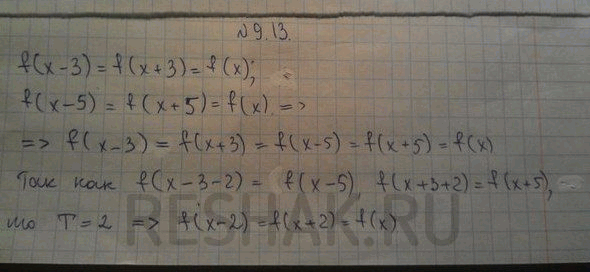 №9.13.
f(x-3) = f(x+3) = f(x);
f(x-5) = f(x+5) = f(x) =>
=> f(x-3) = f(x+3) = f(x-5) = f(x+5) = f(x)
Так как f(x-3-2) = f(x-5), f(x+3+2) = f(x+5),
то T = 2 => f(x-2) = f(x+2) = f(x)
RESHAK.RU